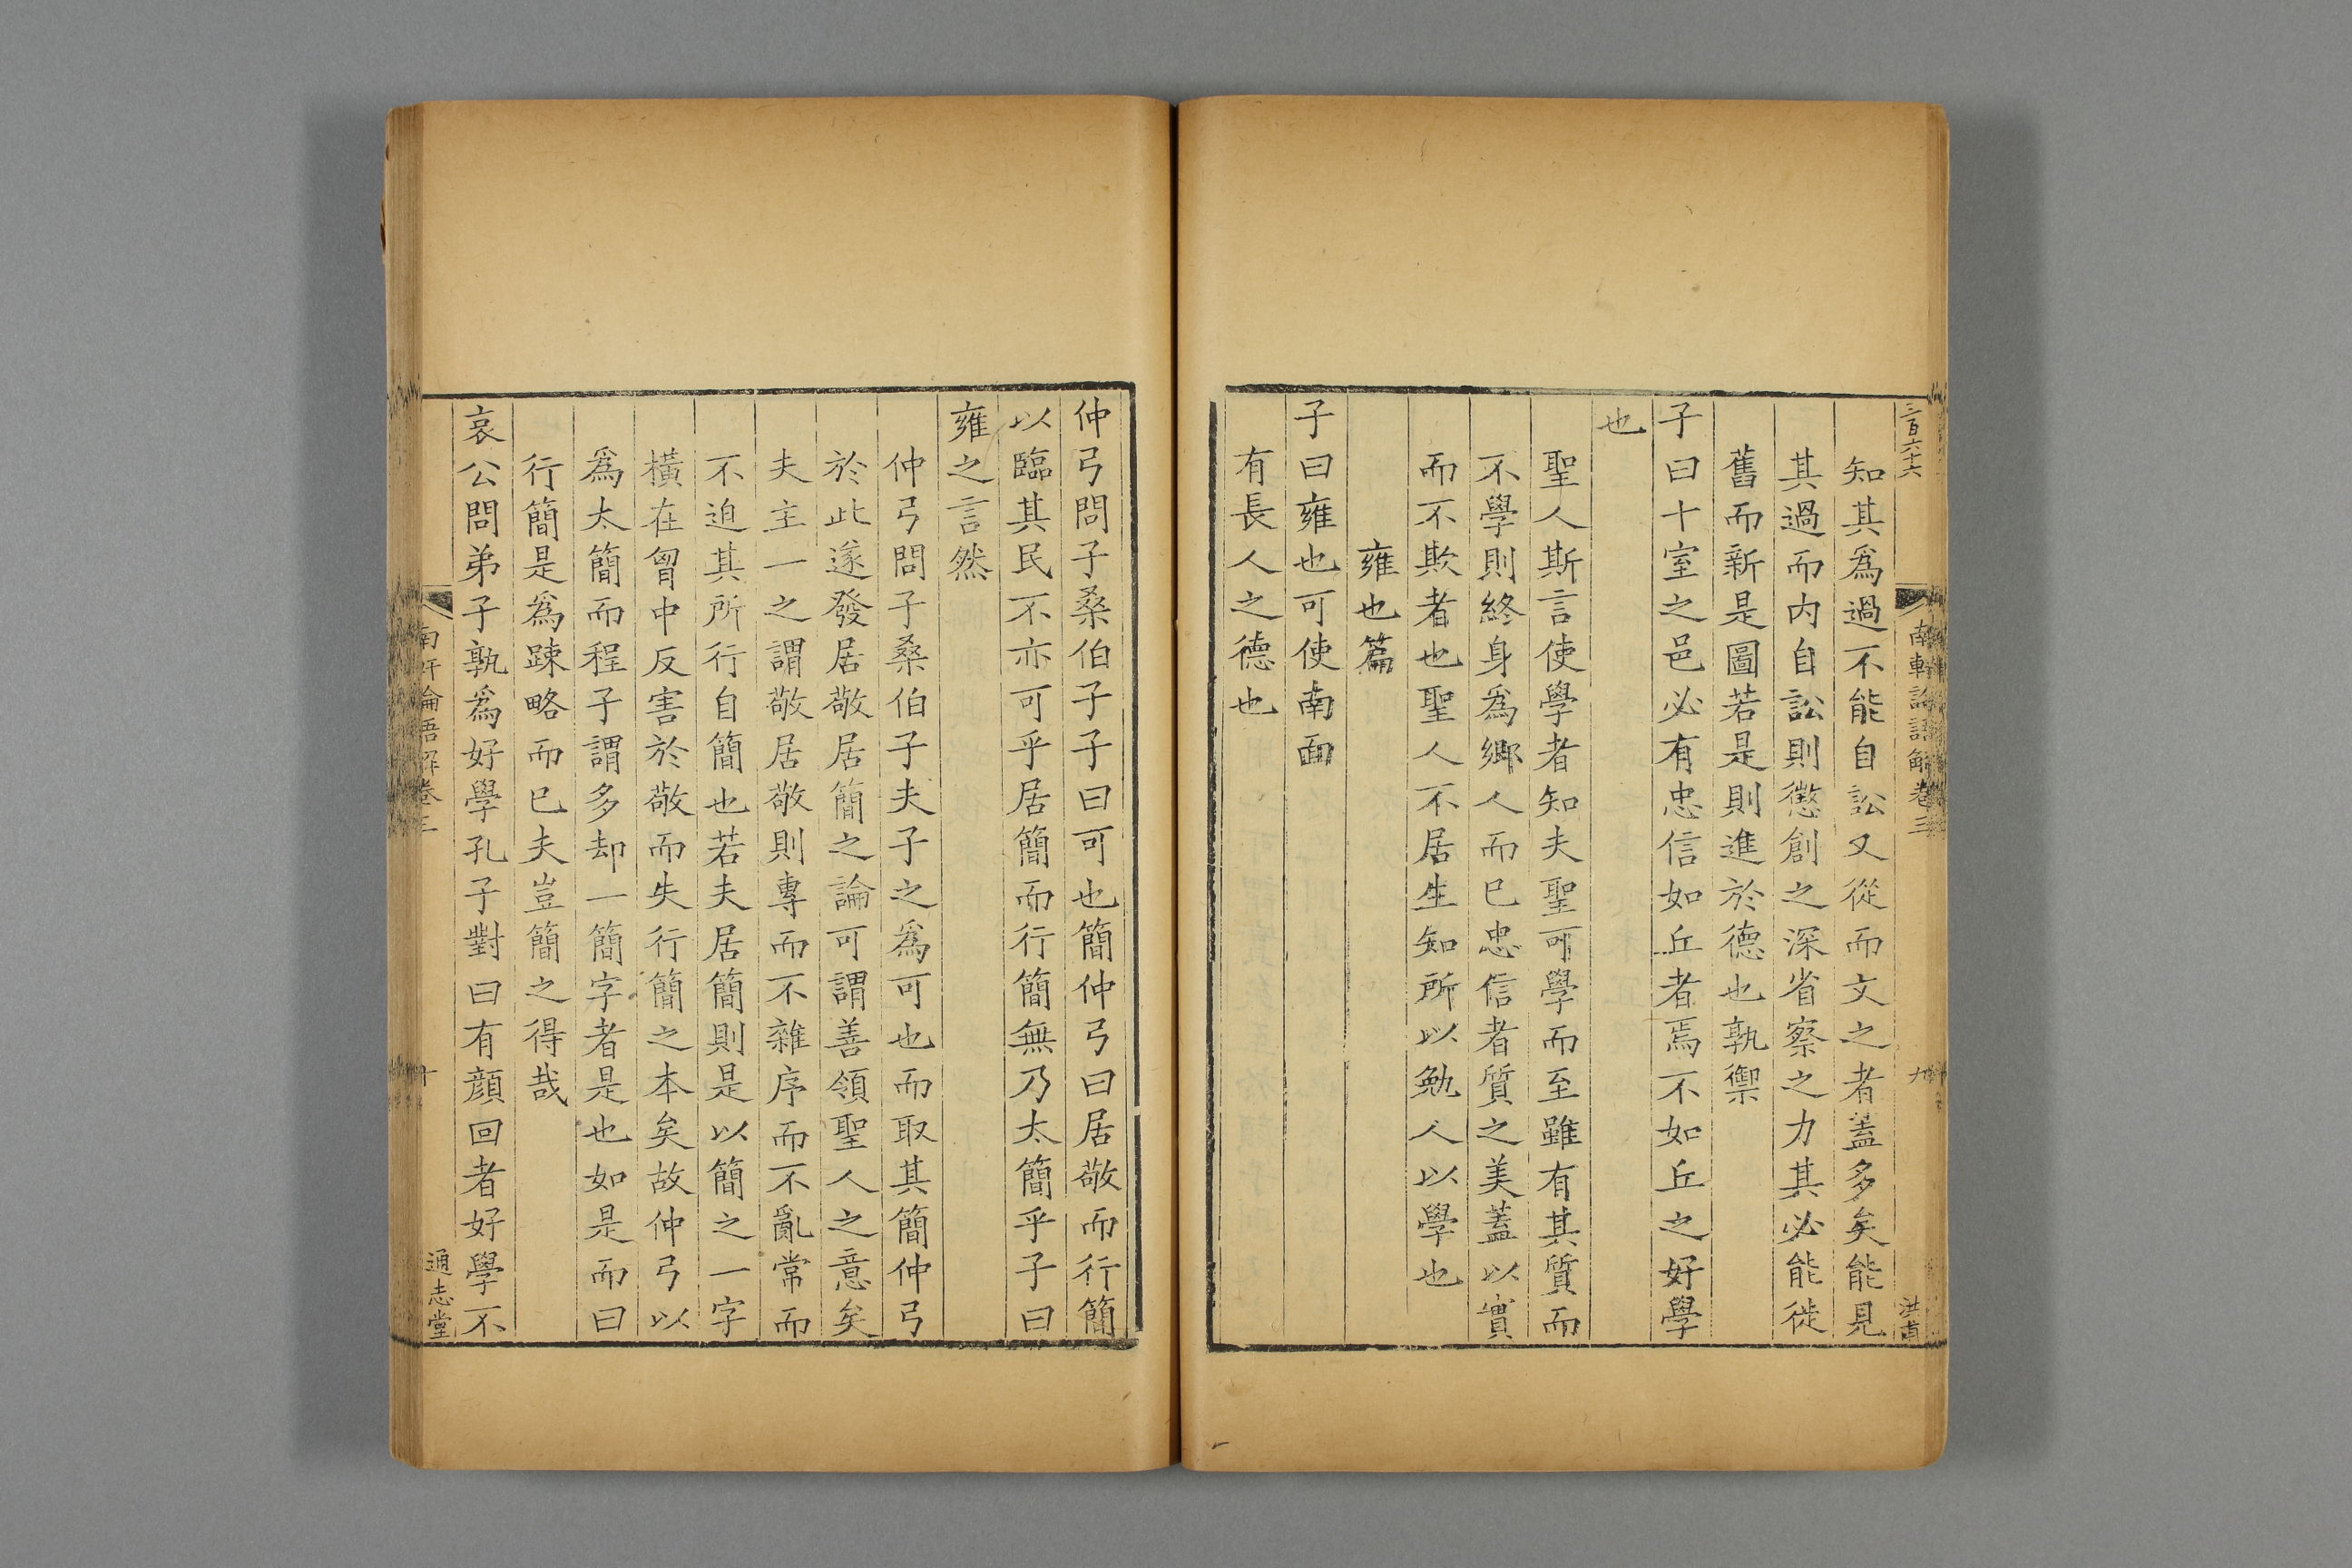 三百六十六
南軒論語解卷三
九
知其爲過不能自訟又從而文之者蓋多矣能見
其過而内自訟則懲創之深省察之力其必能徙
舊而新是圖若是則進於德也孰禦
子曰十室之邑必有忠信如丘者焉不如丘之好學
也
聖人斯言使學者知夫聖可學而至雖有其質而
不學則終身爲鄉人而已忠信者質之美蓋以實
而不欺者也聖人不居生知所以勉人以學也
雍也篇
子曰雍也可使南面
有長人之德也
仲弓問子桑伯子子曰可也簡仲弓曰居敬而行簡
以臨其民不亦可乎居簡而行簡無乃太簡乎子曰
雍之言然
仲弓問子桑伯子夫子之爲可也而取其簡仲弓
於此遂發居敬居簡之論可謂善領聖人之意矣
夫主一之謂敬居敬則專而不雜序而不亂常而
不迫其所行自簡也若夫居簡則是以簡之一字
橫在胷中反害於敬而失行簡之本矣故仲弓以
爲太簡而程子謂多却一簡字者是也如是而曰
行簡是爲踈略而已夫豈簡之得哉
哀公問弟子孰爲好學孔子對曰有顔回者好學不
南軒論語解卷三
十
通志堂